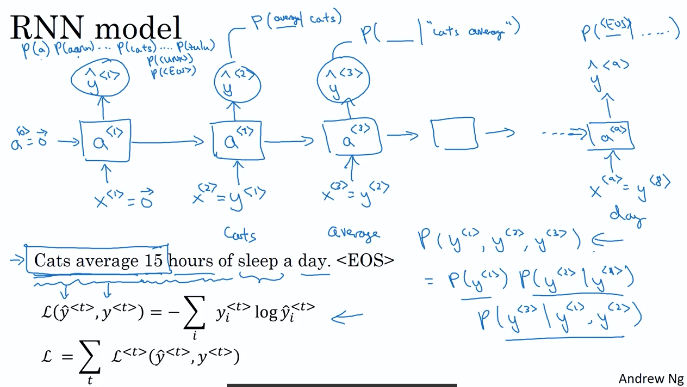 RNN model
P(a) P(aaron) ... P(cats) ... P(zulu)
P(<UNK>)
P(<EOS>)
P(average | cats)
P(__ | "cats average")
P(<EOS> | .....)
ŷ<1> ŷ<2> ŷ<3> ŷ<9>
a<0>=0⃗ a<1> a<2> a<3> ..... a<9>
x<1>=0⃗ x<2>=y<1> x<3>=y<2> x<9>=y<8>
Cats average day
Cats average 15 hours of sleep a day. <EOS>
P(y<1>, y<2>, y<3>)
= P(y<1>) P(y<2>|y<1>)
P(y<3>|y<1>, y<2>)
ℒ(ŷ<t>, y<t>) = −∑i yi<t> log ŷi<t>
ℒ = ∑t ℒ<t>(ŷ<t>, y<t>)
Andrew Ng